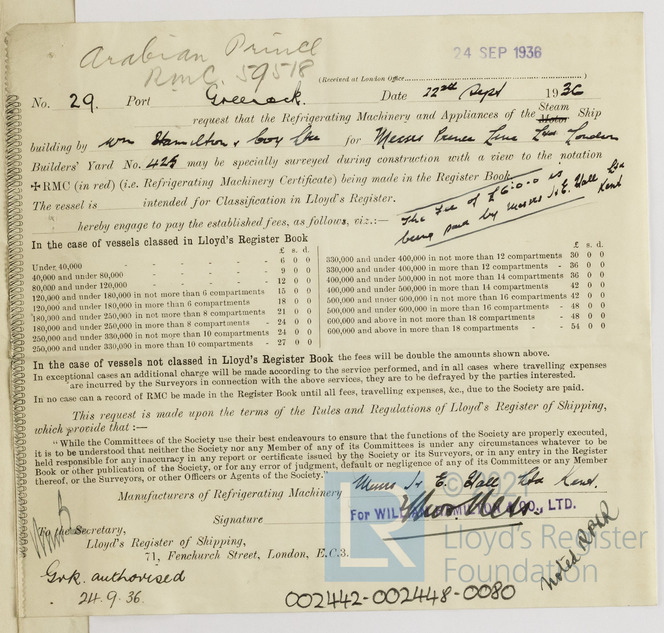 Arabian Prince
RMC. 59518
24 SEP 1936
(Received at London Office
No. 29. Port Greenock. Date 22nd Sept 1936
request that the Refrigerating Machinery and Appliances of the Steam Motor Ship
building by Wm Hamilton & Coy Ltd for Messrs Prince Line Ltd London
Builders' Yard No. 425 may be specially surveyed during construction with a view to the notation
✠RMC (in red) (i.e. Refrigerating Machinery Certificate) being made in the Register Book.
The vessel is intended for Classification in Lloyd's Register.
The fee of £6-0-0 is
being paid by Messrs J. & E. Hall Ltd
Kent
hereby engage to pay the established fees, as follows, viz.:—
In the case of vessels classed in Lloyd's Register Book
£ s. d.
Under 40,000 - - - - - 6 0 0
40,000 and under 80,000 - - - - 9 0 0
80,000 and under 120,000 - - - - 12 0 0
120,000 and under 180,000 in not more than 6 compartments 15 0 0
120,000 and under 180,000 in more than 6 compartments 18 0 0
180,000 and under 250,000 in not more than 8 compartments 21 0 0
180,000 and under 250,000 in more than 8 compartments - 24 0 0
250,000 and under 330,000 in not more than 10 compartments 24 0 0
250,000 and under 330,000 in more than 10 compartments - 27 0 0
£ s. d.
330,000 and under 400,000 in not more than 12 compartments 30 0 0
330,000 and under 400,000 in more than 12 compartments - 36 0 0
400,000 and under 500,000 in not more than 14 compartments 36 0 0
400,000 and under 500,000 in more than 14 compartments 42 0 0
500,000 and under 600,000 in not more than 16 compartments 42 0 0
500,000 and under 600,000 in more than 16 compartments - 48 0 0
600,000 and above in not more than 18 compartments - 48 0 0
600,000 and above in more than 18 compartments - - 54 0 0
In the case of vessels not classed in Lloyd's Register Book the fees will be double the amounts shown above.
In exceptional cases an additional charge will be made according to the service performed, and in all cases where travelling expenses
are incurred by the Surveyors in connection with the above services, they are to be defrayed by the parties interested.
In no case can a record of RMC be made in the Register Book until all fees, travelling expenses, &c., due to the Society are paid.
This request is made upon the terms of the Rules and Regulations of Lloyd's Register of Shipping,
which provide that :—
"While the Committees of the Society use their best endeavours to ensure that the functions of the Society are properly executed,
it is to be understood that neither the Society nor any Member of any of its Committees is under any circumstances whatever to be
held responsible for any inaccuracy in any report or certificate issued by the Society or its Surveyors, or in any entry in the Register
Book or other publication of the Society, or for any error of judgment, default or negligence of any of its Committees or any Member
thereof, or the Surveyors, or other Officers or Agents of the Society."
Manufacturers of Refrigerating Machinery Messrs J. & E. Hall Ltd Kent.
Signature
For WILLIAM HAMILTON & CO., LTD.
To the Secretary,
Lloyd's Register of Shipping,
71, Fenchurch Street, London, E.C.3.
Grk. authorised
24.9.36.
noted
002442-002448-0080
© 2021
LR
Lloyd's Register
Foundation